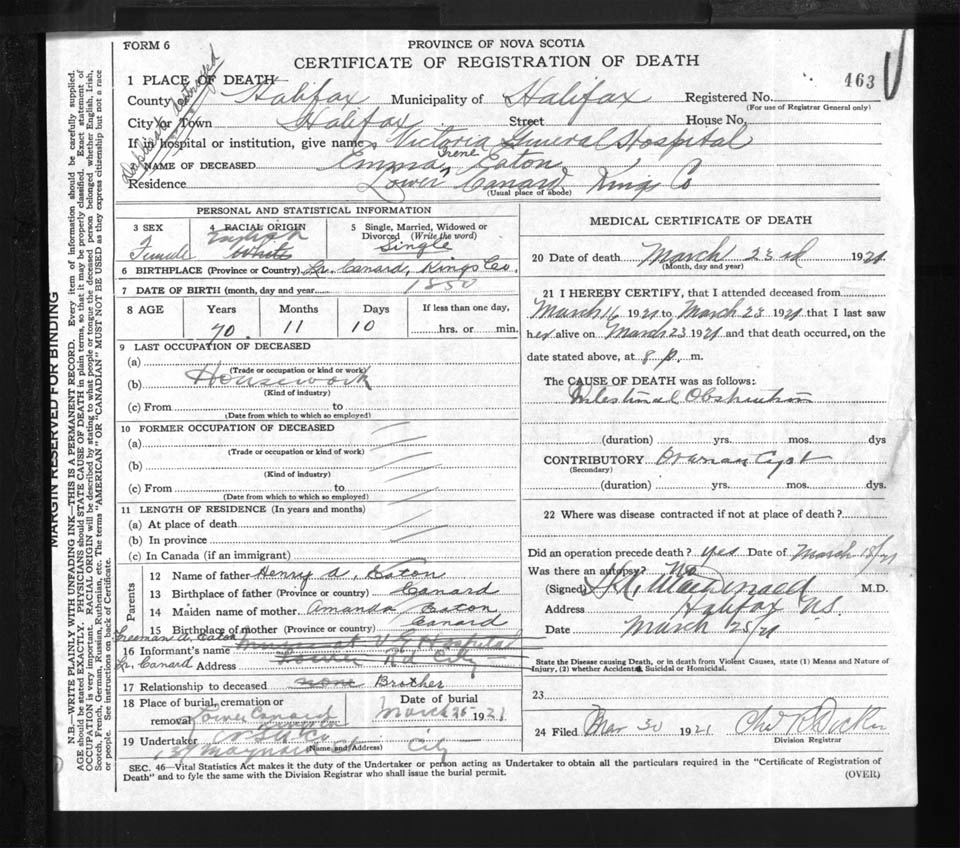 FORM 6
PROVINCE OF NOVA SCOTIA
CERTIFICATE OF REGISTRATION OF DEATH
463
1 PLACE OF DEATH
County Halifax Municipality of Halifax Registered No.
(For use of Registrar General only)
City or Town Halifax Street House No.
If in hospital or institution, give name Victoria General Hospital
NAME OF DECEASED Emma Irene Eaton
Residence Lower Canard Kings Co
(Usual place of abode)
Duplicate destroyed
MARGIN RESERVED FOR BINDING
N.B.—WRITE PLAINLY WITH UNFADING INK.—THIS IS A PERMANENT RECORD. Every item of information should be carefully supplied.
AGE should be stated EXACTLY. PHYSICIANS should STATE CAUSE OF DEATH in plain terms, so that it may be properly classified. Exact statement of
OCCUPATION is very important. RACIAL ORIGIN will be described by stating to what people or tongue the deceased person belonged whether English, Irish,
Scotch, French, German, Russian, Ruthenian, etc. The terms "AMERICAN" OR "CANADIAN" MUST NOT BE USED as they express citizenship but not a race
or people. See instructions on back of Certificate.
PERSONAL AND STATISTICAL INFORMATION
3 SEX
Female
4 RACIAL ORIGIN
English
White
5 Single, Married, Widowed or
Divorced (Write the word)
Single
6 BIRTHPLACE (Province or Country) Lr. Canard, Kings Co.
7 DATE OF BIRTH (month, day and year) 1850
8 AGE Years Months Days If less than one day,
70 11 10 hrs. or min.
9 LAST OCCUPATION OF DECEASED
(a)
(Trade or occupation or kind of work)
(b) Housework
(Kind of industry)
(c) From to
(Date from which to which so employed)
10 FORMER OCCUPATION OF DECEASED
(a)
(Trade or occupation or kind of work)
(b)
(Kind of industry)
(c) From to
(Date from which to which so employed)
11 LENGTH OF RESIDENCE (In years and months)
(a) At place of death
(b) In province
(c) In Canada (if an immigrant)
Parents
12 Name of father Henry A. Eaton
13 Birthplace of father (Province or country) Canard
14 Maiden name of mother Amanda Eaton
15 Birthplace of mother (Province or country) Canard
Freeman A. Eaton
16 Informant's name V G Hospital
Lr. Canard Address Tower Rd City
17 Relationship to deceased none Brother
18 Place of burial, cremation or
removal Lower Canard
Date of burial
March 26 1921
19 Undertaker
(Name and Address)
Maynard St City
MEDICAL CERTIFICATE OF DEATH
20 Date of death March 23rd 1921
(Month, day and year)
21 I HEREBY CERTIFY, that I attended deceased from
March 16 1921 to March 23 1921 that I last saw
her alive on March 23 1921 and that death occurred, on the
date stated above, at 8 p. m.
The CAUSE OF DEATH was as follows:
Intestinal Obstruction
(duration) yrs. mos. dys
CONTRIBUTORY Ovarian Cyst
(Secondary)
(duration) yrs. mos. dys.
22 Where was disease contracted if not at place of death?
Did an operation precede death? yes Date of March 18/21
Was there an autopsy? No
(Signed) MacDonald M.D.
Address Halifax N.S.
Date March 25/21
State the Disease causing Death, or in death from Violent Causes, state (1) Means and Nature of
Injury, (2) whether Accidental, Suicidal or Homicidal.
23
24 Filed Mar 30 1921
Division Registrar
SEC. 46—Vital Statistics Act makes it the duty of the Undertaker or person acting as Undertaker to obtain all the particulars required in the "Certificate of Registration of
Death" and to fyle the same with the Division Registrar who shall issue the burial permit.
(OVER)